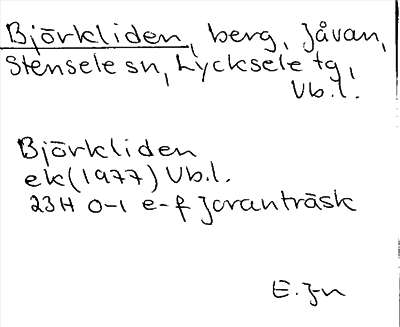 Björkliden, berg, Jåvan,
Stensele sn, Lycksele tg,
Vb.l.
Björkliden
ek (1977) Vb.l.
23H 0-1 e-f Joranträsk
E. Jn